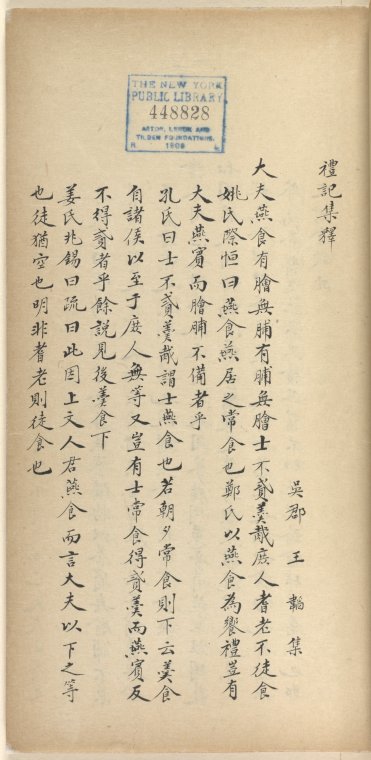 THE NEW YORK
PUBLIC LIBRARY
448828
ASTOR, LENOX AND
TILDEN FOUNDATIONS.
R 1909 L
禮記集釋
吳郡 王韜集
大夫燕食有膾無脯有脯無膾士不貳羹胾庶人耆老不徒食
姚氏際恒曰燕食燕居之常食也鄭氏以燕食為饗禮豈有
大夫燕賓而膾脯不備者乎
孔氏曰士不貳羹胾謂士燕食也若朝夕常食則下云羹食
自諸侯以至于庶人無等又豈有士常食得貳羹而燕賓反
不得貳者乎餘說見後羹食下
姜氏兆錫曰疏曰此因上文人君燕食而言大夫以下之等
也徒猶空也明非耆老則徒食也